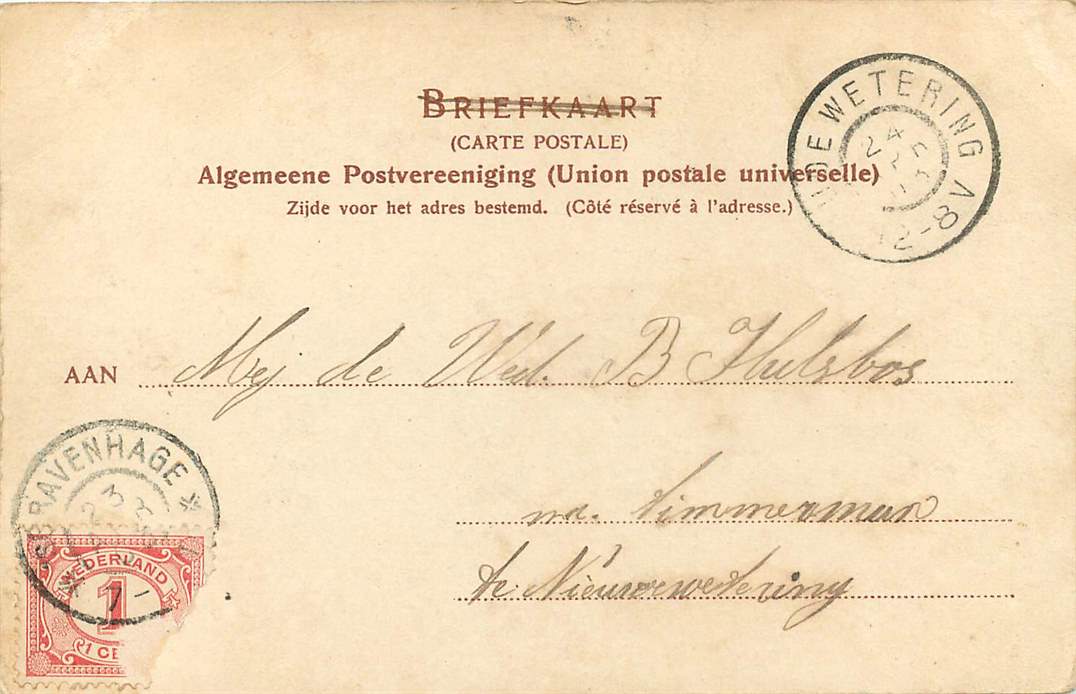 BRIEFKAART
(CARTE POSTALE)
Algemeene Postvereeniging (Union postale universelle)
Zijde voor het adres bestemd. (Côté réservé à l'adresse.)
DE WETERING
24
12-8V
AAN Mej de Wed. B Hulsbos
timmerman
te Nieuwewetering
'S GRAVENHAGE
23 3
NEDERLAND
1
1 CE